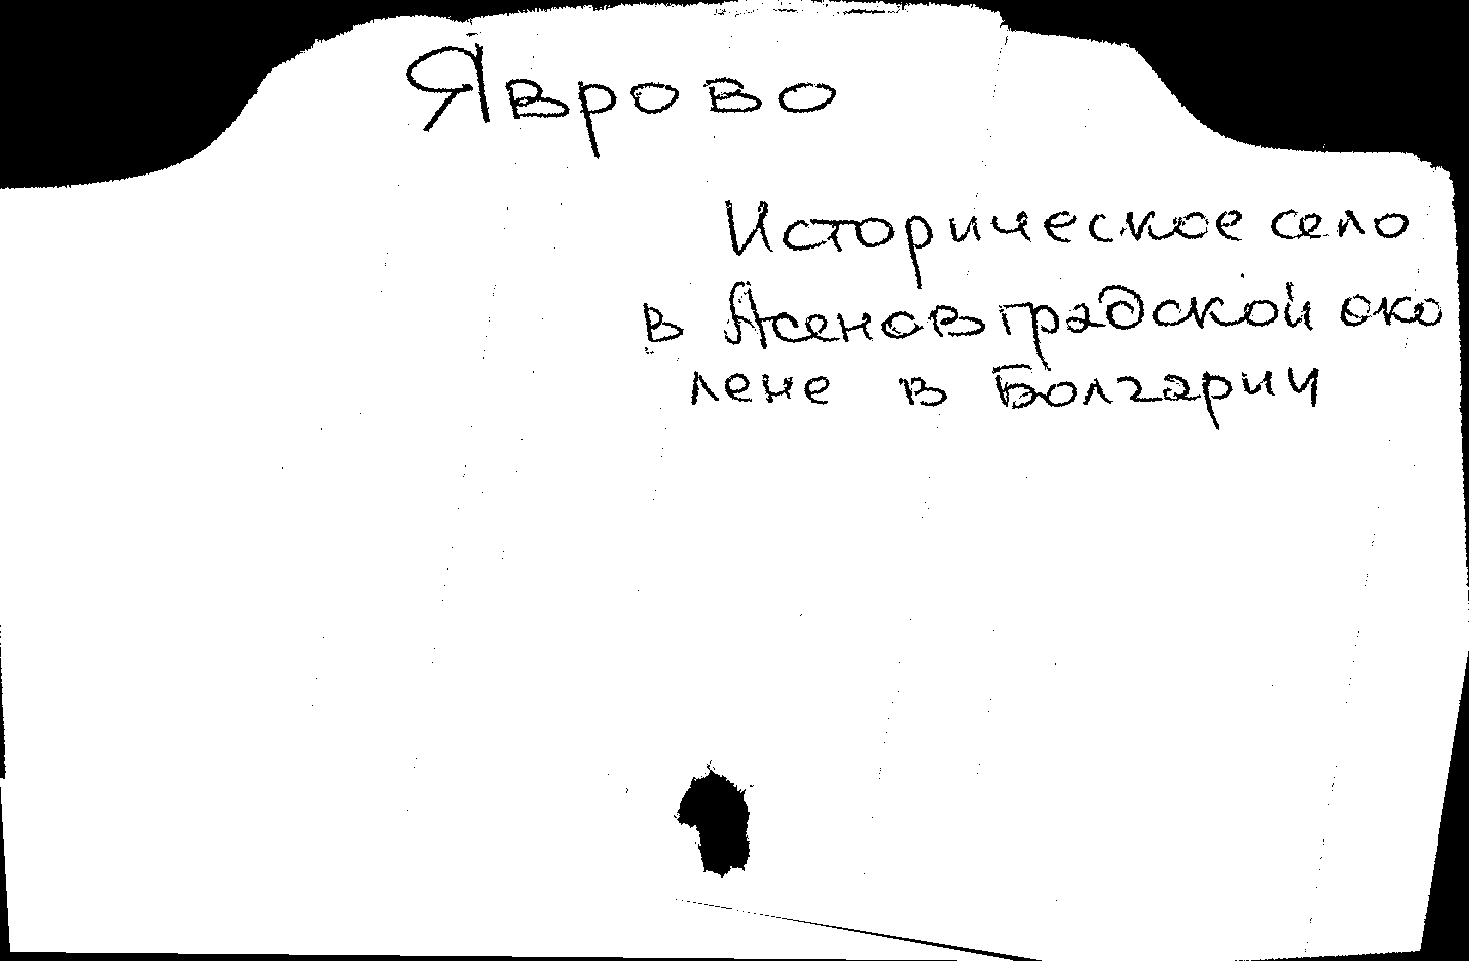 Яврово
Историческое село
в Асеновградской око
лене в Болгарии